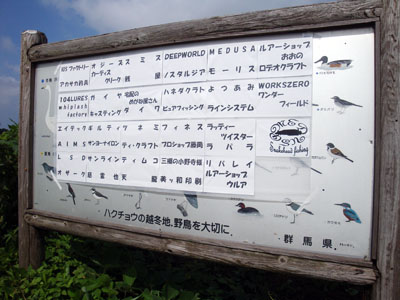 iosファクトリー オジーズ スミス DEEPWORLD MEDUSA ルアーショップ
カーティス 鉄屋 おおの
アカサカ釣具 クリーク ノスタルジア モーリス ロデオクラフト
104LURES ガイヤ 宅配の ハネダクラフト よつあみ WORKSZERO
whiplash めがね屋さん ワンダー
factory キャスティング ダイワ ピュアフィッシング ラインシステム フィールド
エイテック ギルティ ツネミ フィネス ラッティー
ツイスター
AIMS サンヨーナイロン ティクラフト プロショップ藤岡 ラパラ
LSD サンライン ティムコ 三橋の小野寺様 リバレイ
ルアーショップ
オザーク 居富 也天 龍美ッ和印刷 ウルア
ハクチョウの越冬地、野鳥を大切に。
群馬県